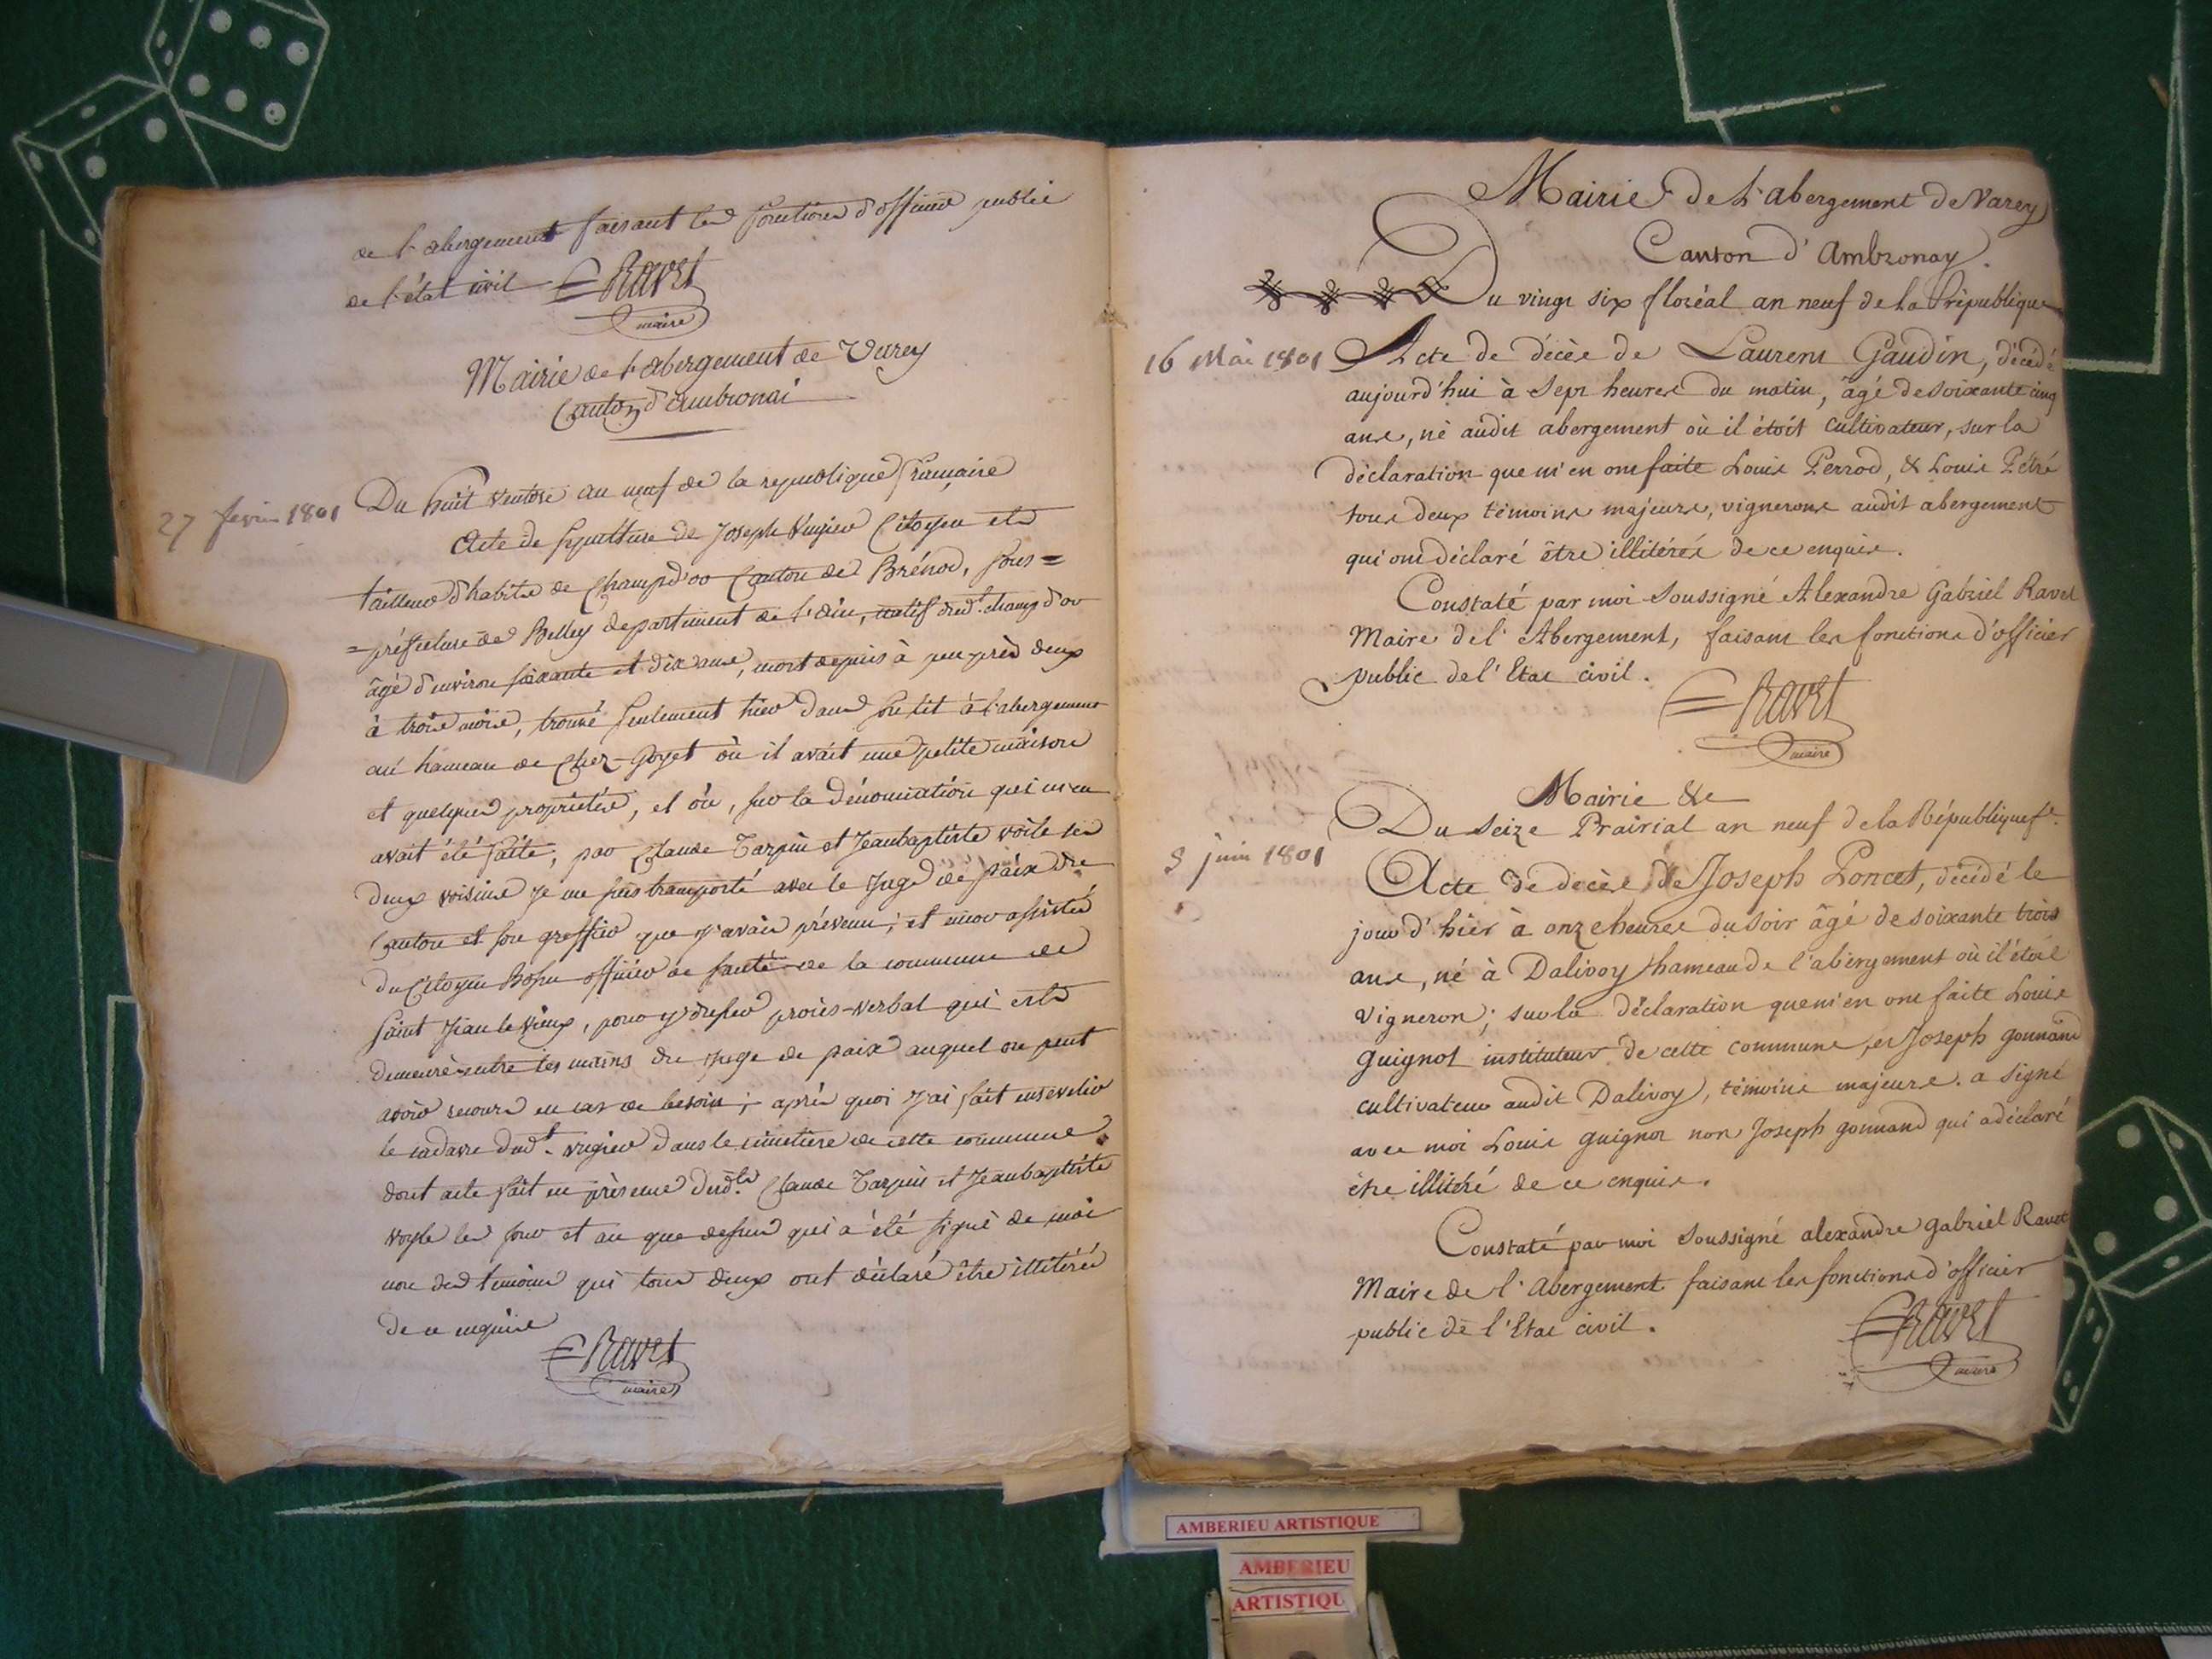 de l'abergement faisant les fonctions d'officier public
de l'état civil Ravet
maire
Mairie de l'abergement de Varey
Canton d'ambronai
27 fevrier 1801
Du huit ventose an neuf de la republique française
Acte de sepulture de Joseph Citoyen et
tailleur d'habits de Champd'or Canton de Brénod, sous=
=préfecture de Belley departement de l'ain, natif dud.t champ d'or
âgé d'environ soixante et dix ans, mort depuis à peu près deux
à trois mois, trouvé seulement hier dans son lit à l'abergement
au hameau de Chez-Goyet où il avait une petite maison
et quelques propriétés, et où, sur la dénonciation qui m'en
avait été faite, par Claude Tarpin et Jeanbaptiste voile ses
deux voisins je me suis transporté avec le juge de paix du
Canton et son greffier que j'avais prévenu, et assisté
du Citoyen officier de santé de la commune de
saint Jean le vieux, pour y dresser procès-verbal qui est
demeuré entre les mains du juge de paix auquel on peut
avoir recours en cas de besoin ; après quoi j'ai fait ensevelir
le cadavre dud.t dans le cimetière de cette commune
dont acte fait en présence desd.ts Claude Tarpin et Jeanbaptiste
voyle les jour et an que dessus qui a été signé de moi
non des temoins qui tous deux ont déclaré être illitérés
de ce enquis
Ravet
maire
Mairie de l'abergement de Varey
Canton d'Ambronay.
Du vingt six floréal an neuf de la République
16 Mai 1801
Acte de décès de Laurent Gaudin, décédé
aujourd'hui à sept heures du matin, âgé de soixante cinq
ans, né audit abergement où il étoit cultivateur, sur la
déclaration que m'en ont faite Louis Perrod, & Louis Pétré
tous deux témoins majeurs, vignerons audit abergement
qui ont déclaré être illitérés de ce enquis.
Constaté par moi soussigné Alexandre Gabriel Ravet
Maire de l'Abergement, faisant les fonctions d'officier
public de l'Etat civil.
Ravet
maire
Mairie &c
Du seize Prairial an neuf de la République f.e
5 juin 1801
Acte de decès de Joseph Poncet, décédé le
jour d'hier à onze heures du soir âgé de soixante trois
ans, né à Dalivoy hameau de l'abergement où il étoit
vigneron ; sur la déclaration que m'en ont faite Louis
guignot instituteur de cette commune, et Joseph gonnand
cultivateur audit Dalivoy, témoins majeurs. a signé
avec moi Louis guignot non Joseph gonnand qui a déclaré
être illitéré de ce enquis.
Constaté par moi soussigné alexandre gabriel Ravet
Maire de l'Abergement faisant les fonctions d'officier
public de l'Etat civil.
Ravet
maire
AMBERIEU ARTISTIQUE
AMBERIEU
ARTISTIQU